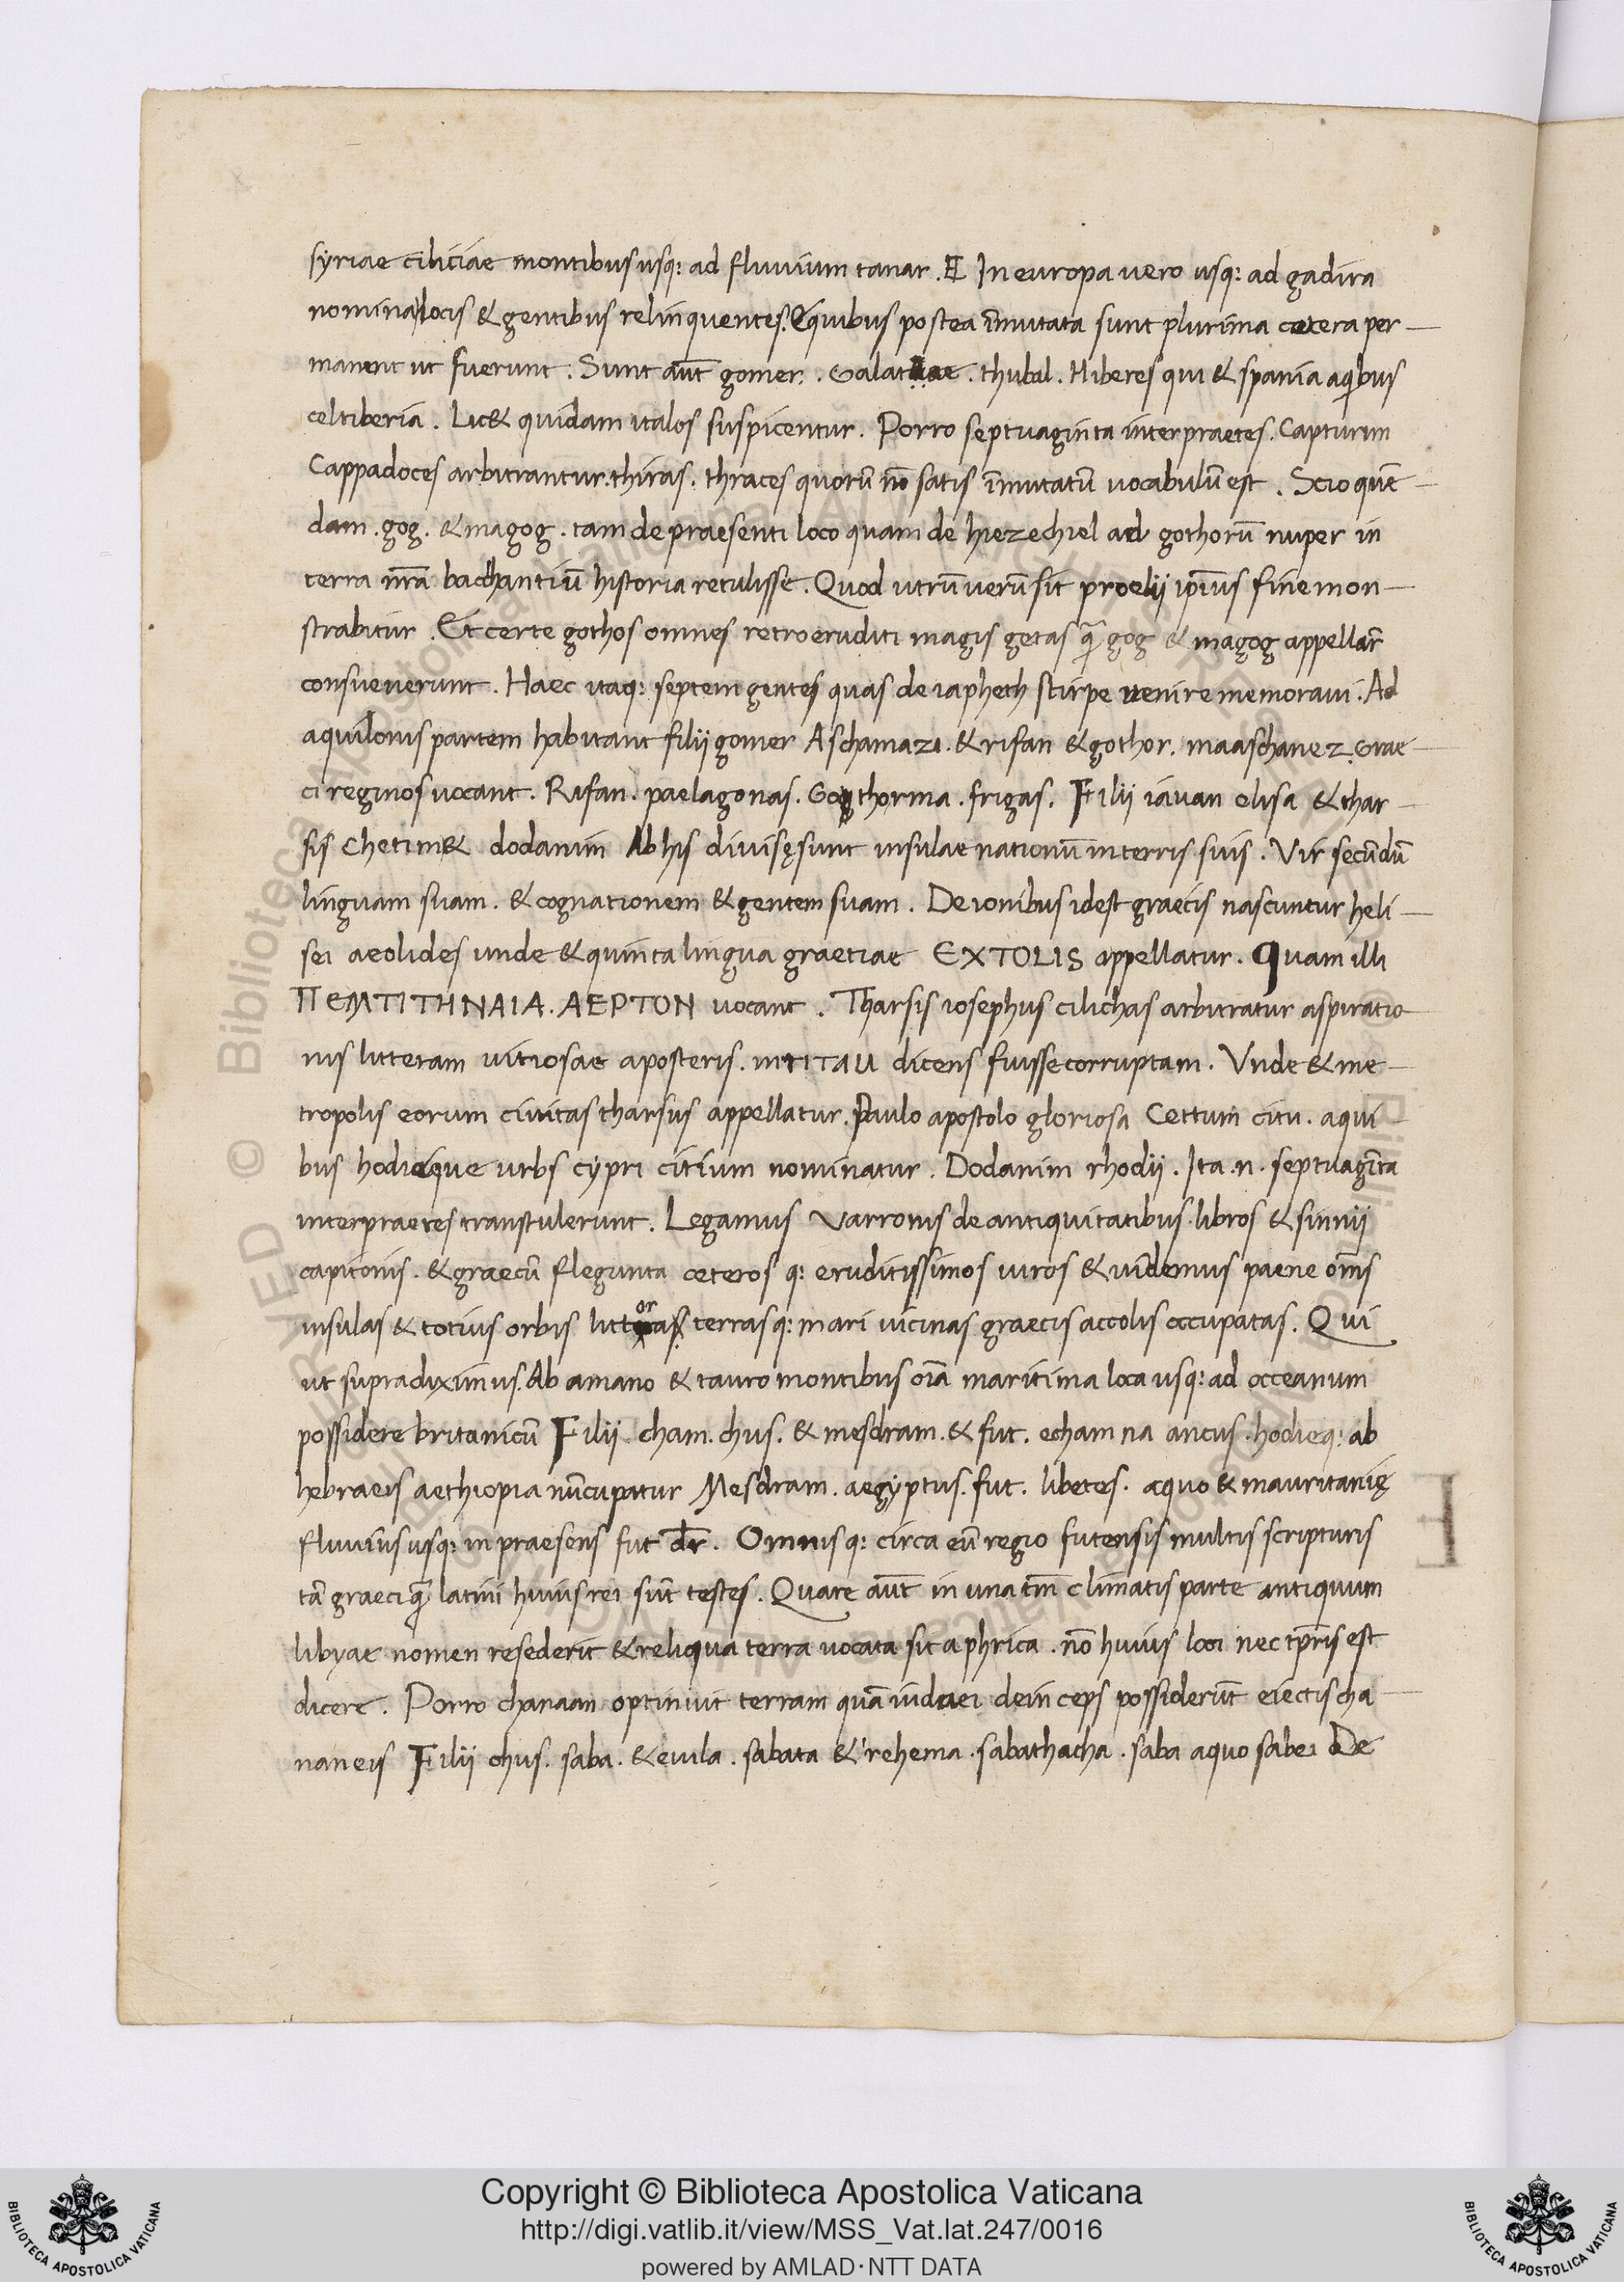 syriae ciliciae montibus usq: ad fluuium tanar. In europa uero usq: ad gadira
nomina locis & gentibus relinquentes. E quibus postea īmutata sunt plurima cetera per-
manent ut fuerunt: Sunt aut̄ gomer. Galatae. thubal. Hiberes qui & spania aq̇ibus
celtiberia. Lic& quidam italos suspicentur. Porro septuaginta interpraetes. Capturim
Cappadoces arbitrantur. thiras. thraces quorū nō satis īmutatū uocabulū est. Scio quē-
dam. gog. & magog. tam de praesenti loco quam de hiezechiel ad gothorū nuper in
terra nr̄a bacchantiū historia retulisse. Quod utrū uerū sit proelii ip̄ius fine mon-
strabitur. Et certe gothos omnes retro eruditi magis getas q̄ gog & magog appellar̄
consueuerunt. Haec itaq: septem gentes quas de iapheth stirpe uenire memoraui. Ad
aquilonis partem habitant filii gomer Aschamazi. & rifan & gothor. maaschanez. Grae-
ci reginos uocant. Rifan. paelagonas. Gogthorma. frigas. Filii iauan elisa & thar-
sis Chetim & dodanim Ab his diuisę sunt insulae nationū in terris suis. Vir secūdū
linguam suam. & cognationem & gentem suam. De ionibus idest graecis nascuntur heli-
sei aeolides unde & quinta lingua graetiae EXTOLIS appellatur. Quam illi
ΠEMTITHNAIA. AEPTON uocant. Tharsis iosephus cilichas arbitratur aspiratio-
nis litteram uitiosae aposteris. in TITAU dicens fuisse corruptam. Vnde & me-
tropolis eorum ciuitas tharsus appellatur. Paulo apostolo gloriosa Cettum citu. aqui-
bus hodieque urbs cypri citium nominatur. Dodanim rhodii. Ita .n. septuagīta
interpraetes transtulerunt. Legamus Varronis de antiquitatibus libros & sinnii
capitonis. & graecū flegunta ceteros q: eruditissimos uiros & uidemus paene om̄s
insulas & totius orbis littoras terras q: mari uicinas graecis accolis occupatas. Qui
ut supra diximus. Ab amano & tauro montibus oīa maritima loca usq: ad occeanum
possidere britanicū Filii cham. chus. & mesdram. & fut. echam na ancus. hodieq: ab
hebraeis aethiopia nūcupatur Mesdram. aegyptus. fut. libetes. aquo & mauritanię
fluuius usq: in praesens fut dr̄. Omnis q: circa eū regio futensis multis scripturis
tā graeci q̄ latini huius rei sūt testes. Quare aut̄ in una tm̄ climatis parte antiquum
libyae nomen resederit & reliqua terra uocata sit aphrica. nō huius loci nec tp̄ris est
dicere. Porro chanaan optinuit terram quā iudaei deinceps possiderūt eiectis cha-
naneis Filii chus. saba. & euila. sabata & rehema. sabathacha. saba aquo sabei De
Copyright © Biblioteca Apostolica Vaticana
http://digi.vatlib.it/view/MSS_Vat.lat.247/0016
powered by AMLAD·NTT DATA
BIBLIOTECA APOSTOLICA VATICANA
BIBLIOTECA APOSTOLICA VATICANA